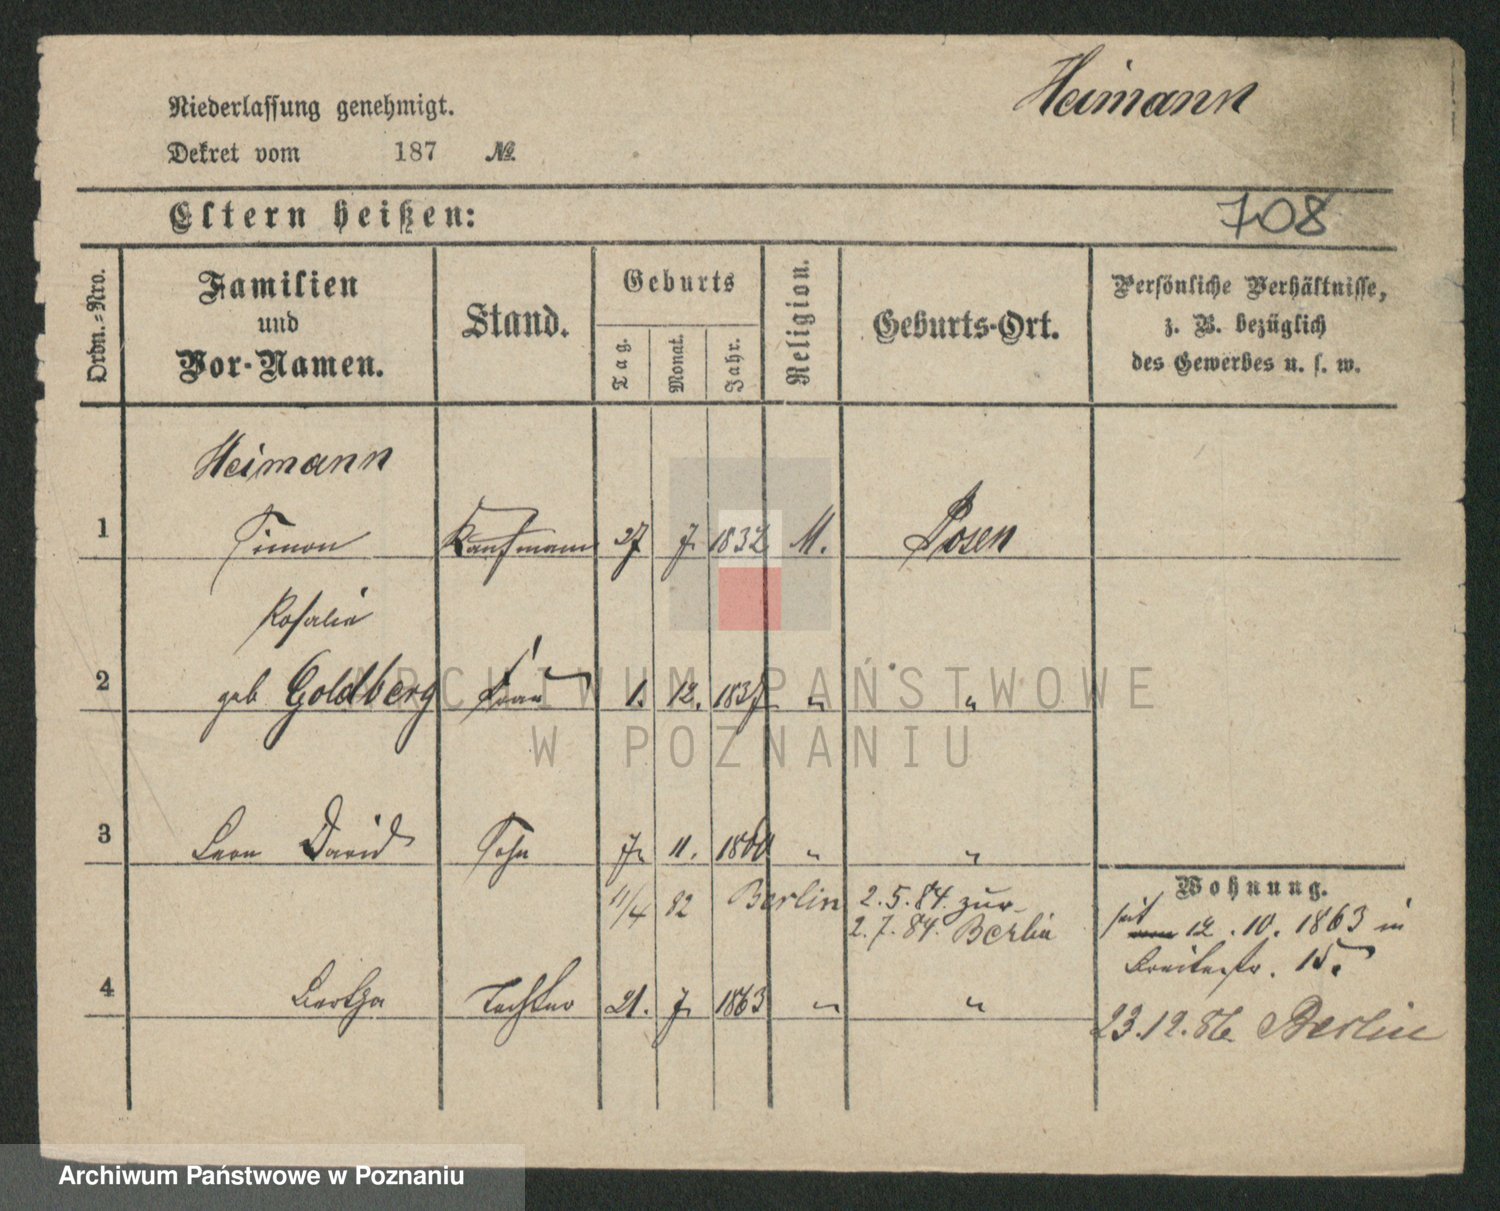 Heimann
Niederlassung genehmigt.
Dekret vom 187 №
708
Eltern heißen:
Ordn.-Nro. Familien und Vor-Namen. Stand. Geburts Tag. Monat. Jahr. Religion. Geburts-Ort. Persönliche Verhältnisse, z. B. bezüglich des Gewerbes u. s. w.
Heimann
1 Simon Kaufmann 27 7. 1832 M. Posen
Rosalie
2 geb Goldberg Frau 1. 12. 1837 " "
3 Leon David Sohn 7. 11. 1860 " "
11/4 82 Berlin 2.5.84. zur
2.7.84. Berlin
4 Bertha Tochter 21. 7. 1863 " "
Wohnung.
seit 12. 10. 1863 in
Breitestr. 15.
23.12.86 Berlin
ARCHIWUM PAŃSTWOWE
W POZNANIU
Archiwum Państwowe w Poznaniu